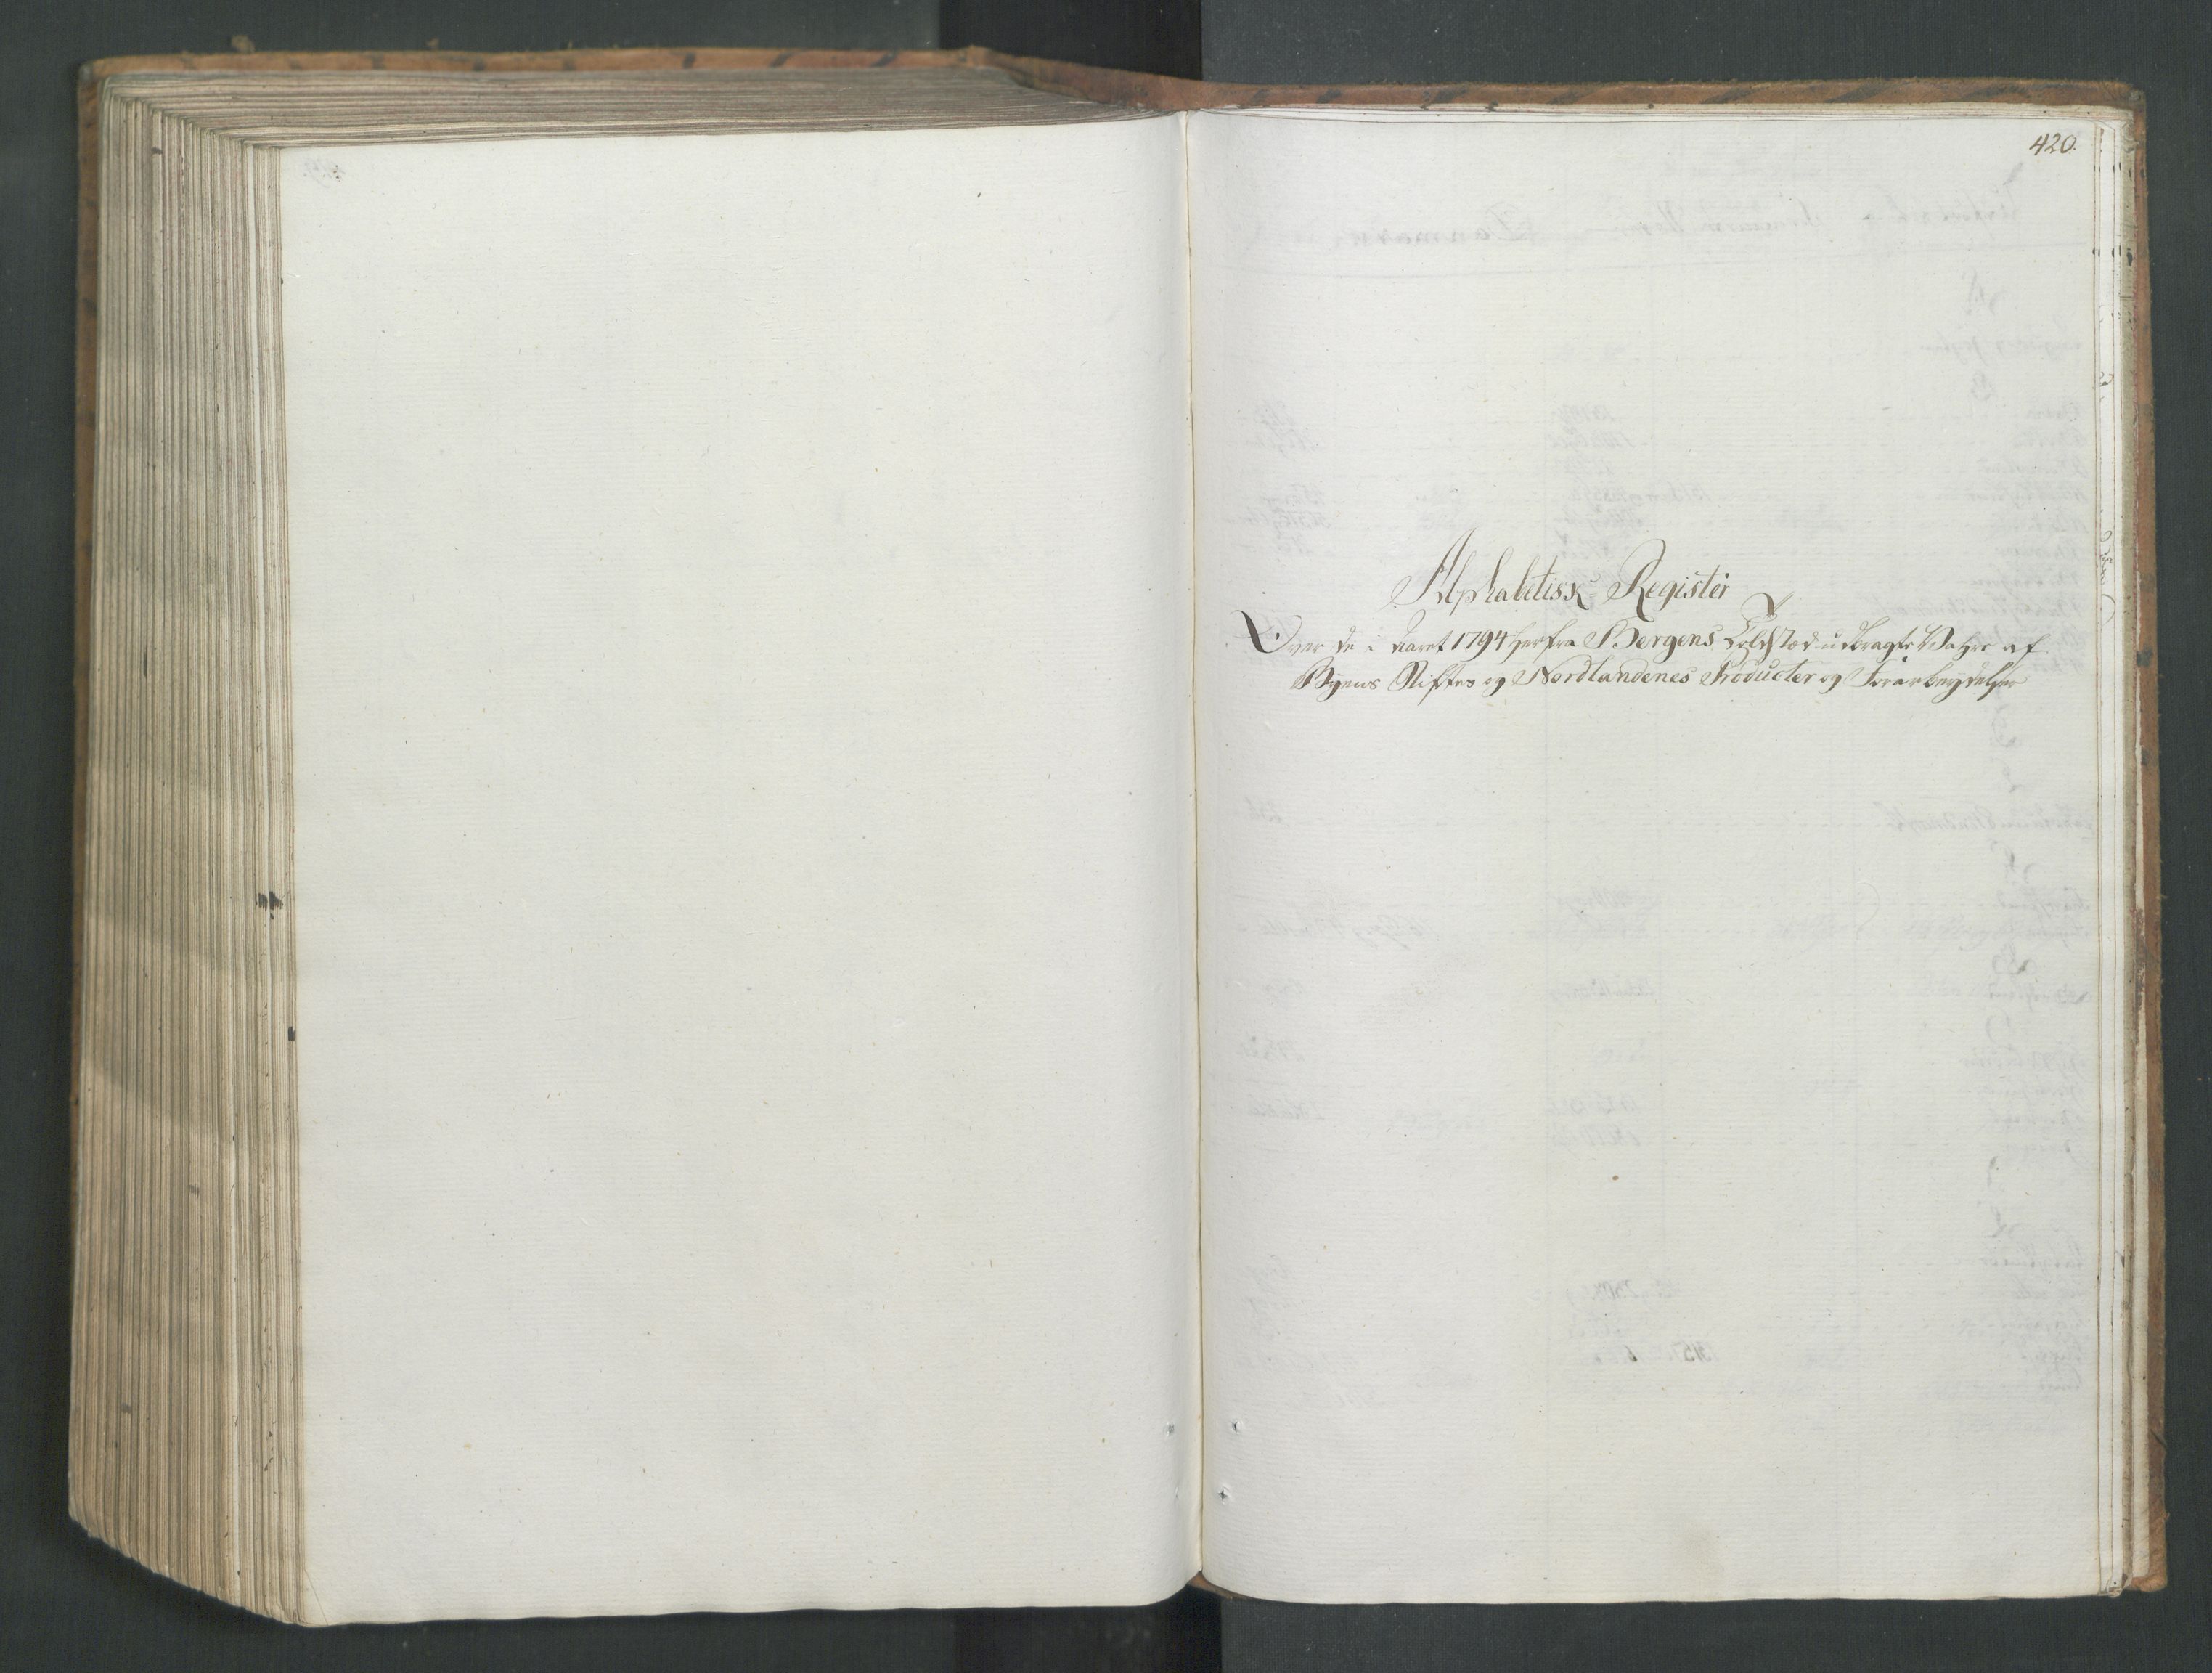 420.
Alphabetisk Register
Over de i Aaret 1794 herfra Bergens Toldsted udbragte Vahre af
Byens Stiftes og Nordlandenes Producter og Forarbeydelser